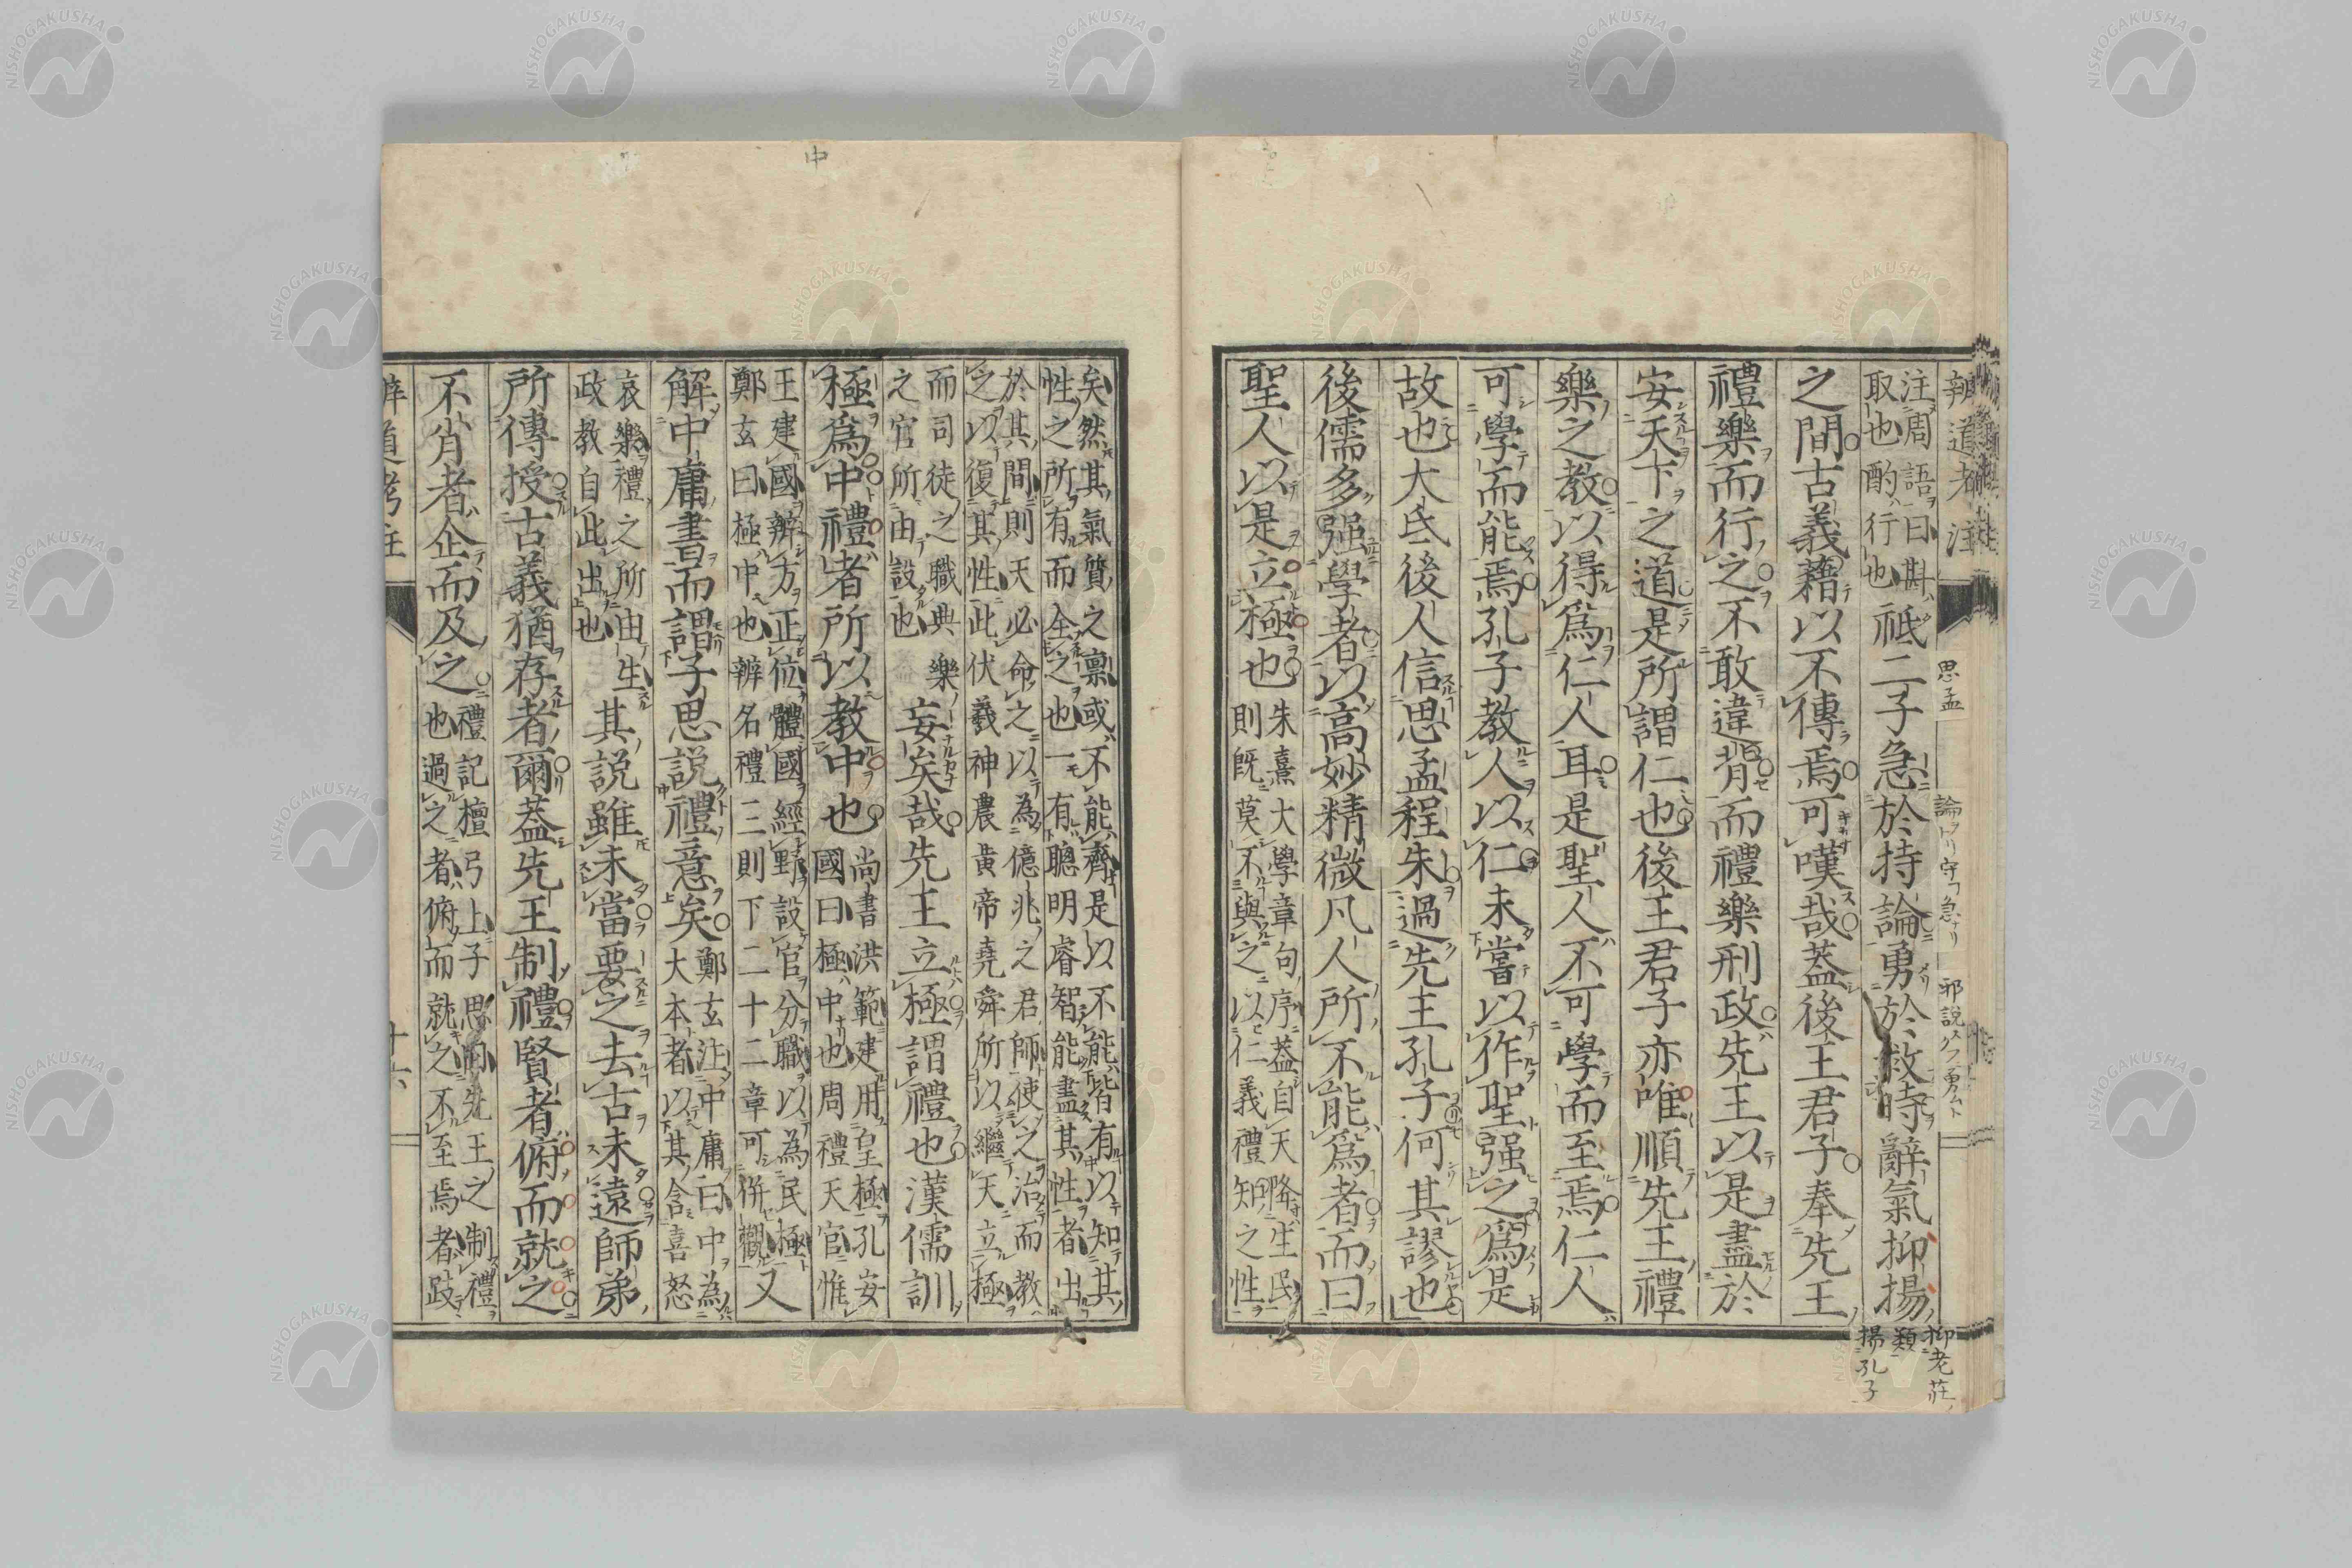 辨道考注
思孟
論
邪說
注周語曰斟
取也酌行也
祗二子急於持論勇於救時辭氣抑揚
之間古義藉以不傳焉可嘆哉蓋後王君子奉先王
禮樂而行之不敢違背而禮樂刑政先王以是盡於
安天下之道是所謂仁也後王君子亦唯順先王禮
樂之教以得爲仁人耳是聖人不可學而至焉仁人
可學而能焉孔子教人以仁未嘗以作聖强之爲是
故也大氐後人信思孟程朱過先王孔子何其謬也
後儒多强學者以高妙精微凡人所不能爲者而曰
聖人以是立極也
朱熹大學章句序蓋自天降生民
則既莫不與之以仁義禮知之性
抑老莊
類
揚孔子
矣然其氣質之禀或不能齊是以不能皆有以知其
性之所有而全之也一有聰明睿智能盡其性者出
於其間則天必命之以為億兆之君師使之治而教
之以復其性此伏羲神農黃帝堯舜所以繼天立極
而司徒之職典樂
之官所由設也
妄矣哉先王立極謂禮也漢儒訓
極爲中禮者所以教中也
尚書洪範建用皇極孔安
國曰極中也周禮天官惟
王建國辨方正位體國經野設官分職以為民極
鄭玄曰極中也辨名禮三則下二十二章可併觀
又
解中庸書而謂子思說禮意矣
鄭玄注中庸曰中為
大本者以其含喜怒
哀樂禮之所由生
政教自此出也
其說雖未當要之去古未遠師弟
所傳授古義猶存者爾蓋先王制禮賢者俯而就之
不肖者企而及之
禮記檀弓上子思曰先王之制禮
也過之者俯而就之不至焉者跂
辨道考注
十六
中
NISHOGAKUSHA